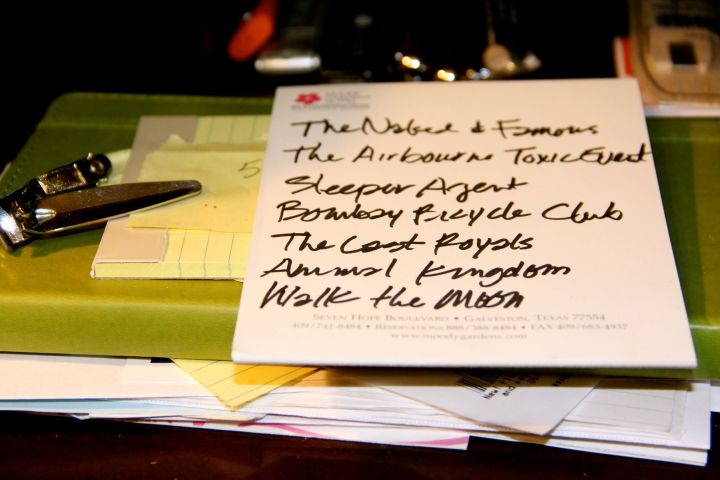 The Naked & Famous
The Airbourne Toxic Event
Sleeper Agent
Bombay Bicycle Club
The Last Royals
Animal Kingdom
Walk the Moon
Seven Hope Boulevard • Galveston, Texas 77554
409/741-8484 • Reservations 888/388-8484 • Fax 409/683-4937
www.moodygardens.com
5